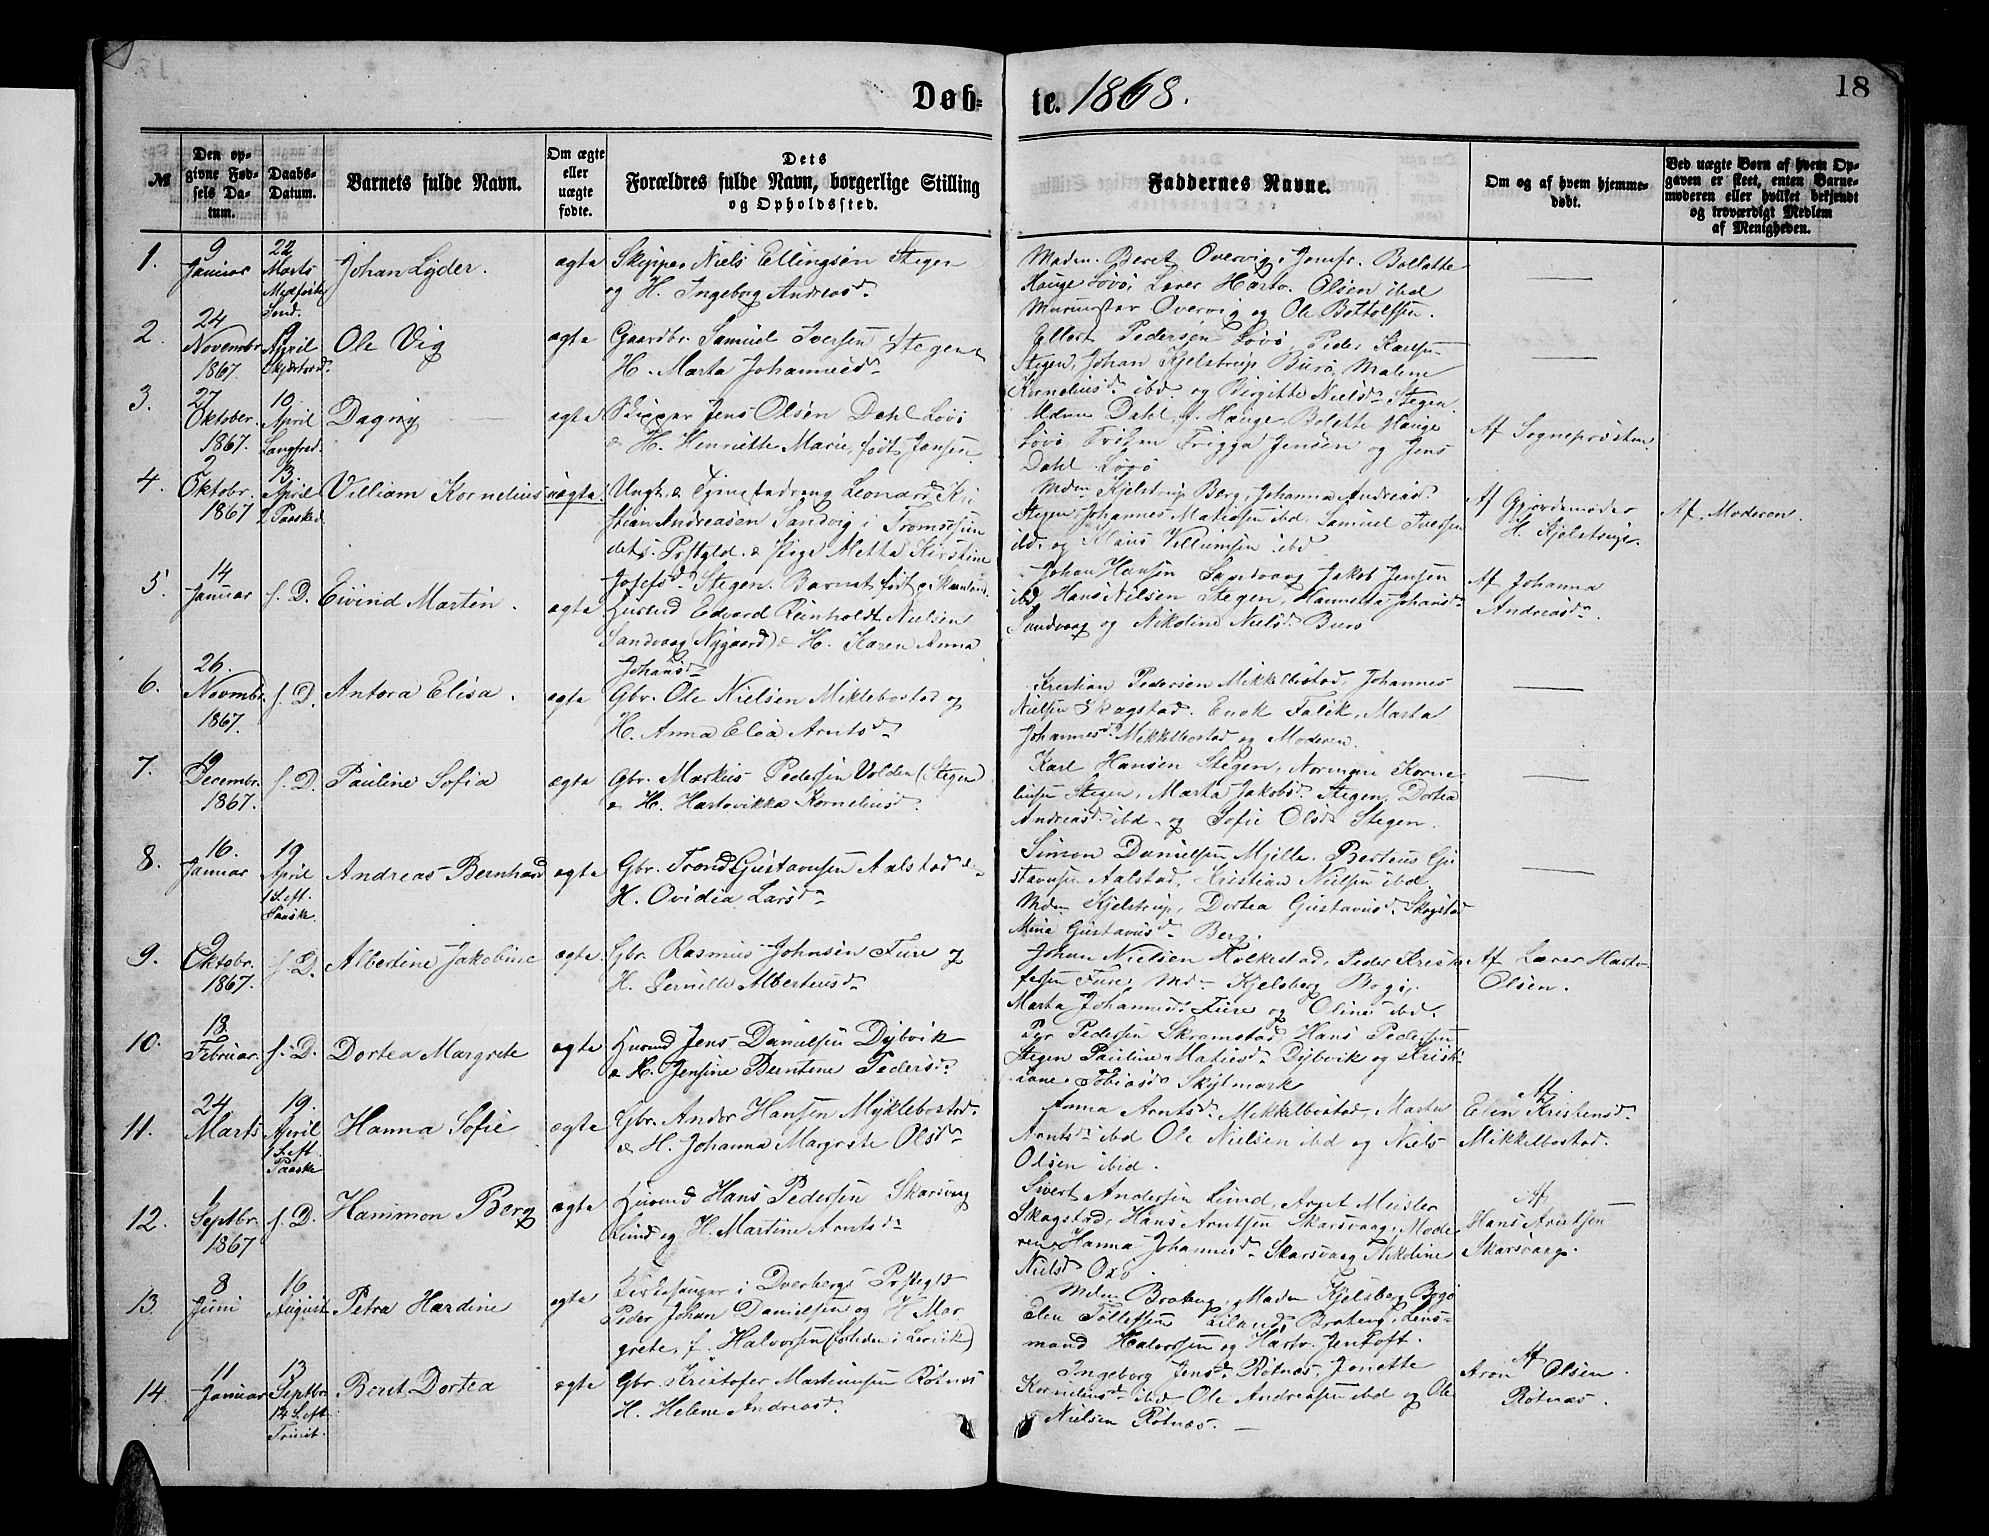 Døb=
te. 1868.
18
№
Den op-
givne Fød-
sels Da-
tum.
Daabs-
Datum.
Barnets fulde Navn.
Om ægte
eller
uægte
fødte.
Dets
Forældres fulde Navn, borgerlige Stilling
og Opholdssted.
Faddernes Navne.
Om og af hvem hjemme-
døbt.
Ved uægte Børn af hvem Op-
gaven er skeet, enten Barne-
moderen eller hvilket bekjendt
og troværdigt Medlem
af Menigheden.
1.
9
Januar
22
Marts
Johan Lyder.
ægte
Skipper Niels Ellingsen Stegen
og H. Ingeborg Andreasd.
Madm. Beret Overvig, Jomfr. Bollette
Hauge Løvø, Lærer Hartv. Olsen ibd
Overvig og Ole Bottolfsen.
2.
24
Novembr.
1867.
9
April
Skjærtorsd.
Ole Vig
ægte
Gaardbr. Samuel Iversen Stegen
H. Marta Johannesd.
Pedersen Løvø, Peder Karlsen
Stegen, Johan Kjelstrup Burø, Malene
Korneliusd. ibd. og Birgitte Nielsd. Stegen.
3.
27
Oktober.
1867.
10.
April
Langfred.
Dagny
ægte
Skipper Jens Olsen Dahl Løvø
& H. Henriette Marie, født Jensen
Mdm. Dahl f. Hauge, Bolette Hauge
Løvø, Frøken Frigga Jensen og Jens
Dahl Løvø
Af Sognepræsten
4.
2
Oktobr.
1867
13.
April
2 Paasked.
Villiam Kornelius
uægte.
Ungk. & Leonard Kri
stian Andreasen Sandvig i Tromsøsun
dets Præstgld. & Pige Metta Kirstine
Josefsd. Stegen. Barnet født
Mdm. Kjelstrup Berg, Johanna Andreasd.
Stegen, Johannes Matiasen ibd. Samuel Iversen
ibd. og Klaus Villumsen ibd
Af Gjordemoder
H. Kjelstrup.
Af Moderen.
5.
14
Januar
s. D.
Eivind Martin.
ægte
Husmd Edvard Reinholdt Nielsen
Sandvaag Nygaard) & H. Karen Anna
Johansd.
Johan Hansen Sandvaag Jakob Jensen
ibd, Hans Nilsen Stegen, Hannetta Johansd.
Sandvaag og Nikoline Nielsd. Burø
Af Johanna
Andreasd.
6.
26.
Novmbr.
1867.
s. D.
Antora Elisa.
ægte
Gbr. Ole Nielsen Miklebostad og
H. Anna Elea Arntsd.
Kristian Pedersen Mikkelbostad, Johannes
Nielsen Skogstad. Enok Falck, Marta
Johannesd. Mikkelbostad og Moderen.
7.
19
Decembr.
1867.
s. D.
Pauline Sofia
ægte
Gbr. Markus Pedersen Volden (Stegen)
& H. Hartvikka Korneliusd.
Karl Hansen Stegen, Normann Korne-
liusen Stegen, Marta Jakobsd. Stegen, Dortea
Andreasd. ibd. og Sofie Olsd. Stegen.
8.
16.
Januar
19
April
1 S. eft.
Paaske.
Andreas Bernhard
ægte
Gbr. Trond Gustavsen Aalstad &
H. Ovidia Larsd.
Simon Danielsen Mjelle. Berteus Gu
stavsen Aalstad, Kristian Nielsen ibd
Mdm. Kjelstrup, Dortea Gustavusd. Skogstad
Mina Gustavusd. Berg.
9.
9
Oktobr.
1867.
s. D.
Albertine Jakobine
ægte
Gbr. Rasmus Johnsen Fure og
H. Pernille Albertusd.
Johan Nielsen Holkestad, Peder Kristo
fersen Fure, Md. Kjelsberg Bogø,
Marta Johannesd. Fure og Oline ibd.
Af Lærer Hartv.
Olsen.
10.
18.
Februar.
s. D.
Dortea Margrete
ægte
Husmd Jens Danielsen Dybvik
& H. Jensine Berntine Pedersd.
Per Pedersen Skromstad Hans Pedersen
Stegen Pauline Matiasd. Dybvik og Kristi
iane Tobiasd. Skjtmark
11.
24
Marts
19.
April
1 S. eft.
Paaske
Hanna Sofie
ægte
Gbr. Ander Hansen Myklebostad.
& H. Johanna Margrete Olsd.
Anna Arntsd. Mikkelbostad, Marta
Arntsd. ibd Ole Nielsen ibd og Niels
Olsen ibid.
Af
Elen Kristensd.
Mikkelbostad.
12.
1
Septbr.
1867
s. D.
Hammon Berg
ægte
Husmd Hans Pedersen Skarsvaag
Lund og H. Martine Arntsd.
Sivert Andersen Lund, Arnt Meisler
Skogstad, Hans Arntsen Skarsvaag, Mode
ren, Hanna Johannesd. Skarsvaag Nikoline
Nielsd
Af
Hans Arntsen
Skarsvaag.
13.
8
Juni
16
August
Petra Hardine
ægte
Kirkesanger i Dverbergs Præstegld.
Peder Johan Danielsen og H Mar
grete, f. Halvorsen (forleden i Lervik)
Mdm. Broteng, Madm Kjelsberg Bogø
Elen Tollefsen Leland, Broteng, Lens-
mand Halvorsen og Hartv. Jentoft.
14.
11
Januar
13
Septbr.
14 S. eft.
Trinit.
Berit Dortea
ægte
Gbr. Kristofer Martinusen Røtnæs
H. Helene Andreasd.
Ingeborg Jensd. Røtnæs. Jonette
Korneliusd. ibd Ole Andreasen ibd og Ole
Nielsen Røtnæs.
Af
Aron Olsen
Røtnæs.